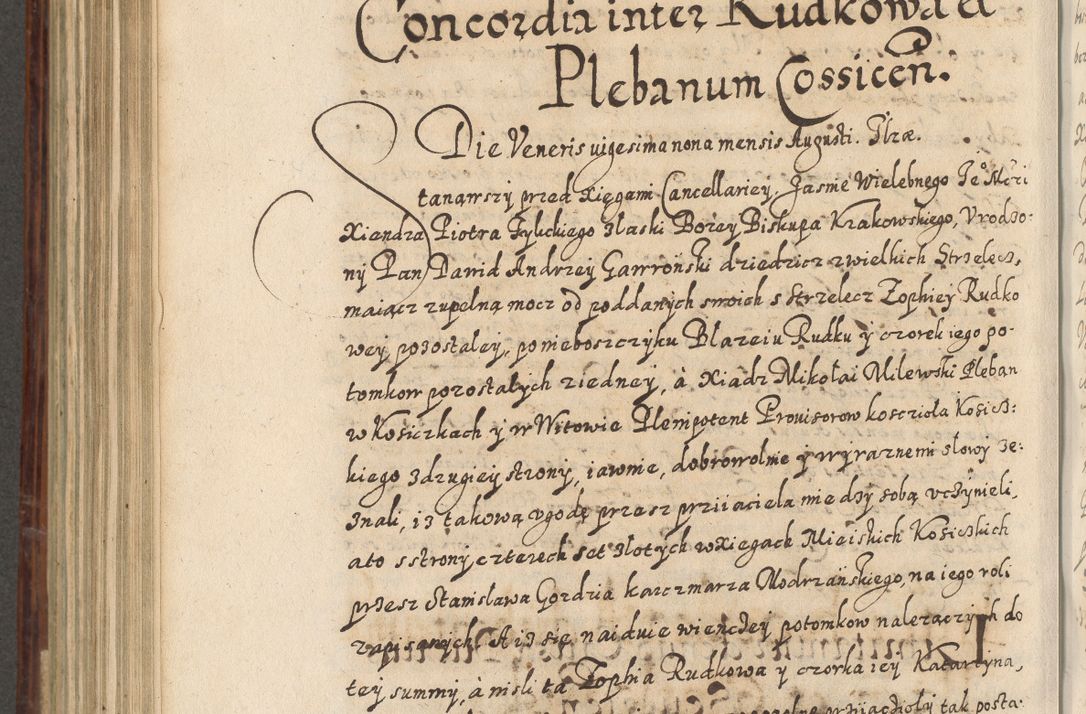 Concordia inter Rudkowa et
Plebanum Cossicen̄.
Die Veneris vigesima nona mensis Augusti.
Stanąwszy przed Xięgami Cancellariey, Jasnie Wielebnego Je° Mści
Xiendza Piotra Tylickiego z łaski Bożey Biskupa Krakowskiego, Vrodzo-
ny Pan Dawid Andrzey Gawroński dziedzicz z wielkich Strzelecz,
maiącz zupełną mocz od poddanych swoich s Strzelecz Zophiey Rudko
wey pozostałey, po nieboszczyku Błazeiu Rudku y czorek iego po-
tomkow pozostałych z iedney, à Xiadz Mikołai Milewski Pleban
w Kosiczkach y w Witowie Plenipotent Prouisorow koscziola Kosicz:
kiego z drugiey strony, iawnie, dobrowolnie y wyraznemi słowy ze:
znali, iz takową vgodę przesz przyiaciela miedzy sobą vczynieli,
a to s strony czterech set złotych w Xięgach Mieiskich Kosiczkich
przesz Stanisława Gozdzia karczmarza Modrzańskiego, na iego roli
zapisanych. A iz się naiduie wienczey potomkow należączych do
tey summy, à nisli ta Zophia Rudkowa y czorka iey Katarzyna,
przyiaczioły tak posta-